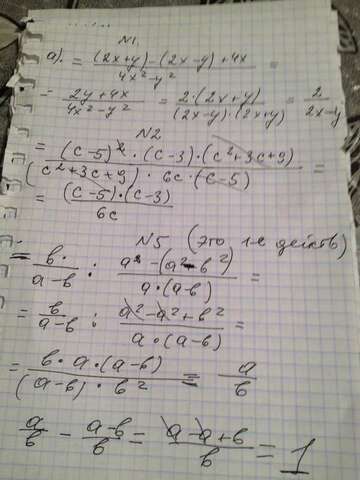 N1.
а). = (2x+y)-(2x-y)+4x / 4x²-y² =
= 2y+4x / 4x²-y² = 2·(2x+y) / (2x-y)·(2x+y) = 2 / 2x-y
N2
= (c-5)²·(c-3)·(c²+3c+9) / (c²+3c+9)·6c·(c-5) =
= (c-5)·(c-3) / 6c
N5 (это 1-е действ)
= b / a-b : a²-(a²-b²) / a·(a-b) =
= b / a-b : a²-a²+b² / a·(a-b) =
= b·a·(a-b) / (a-b)·b² = a / b
a / b - a-b / b = a-a+b / b = 1